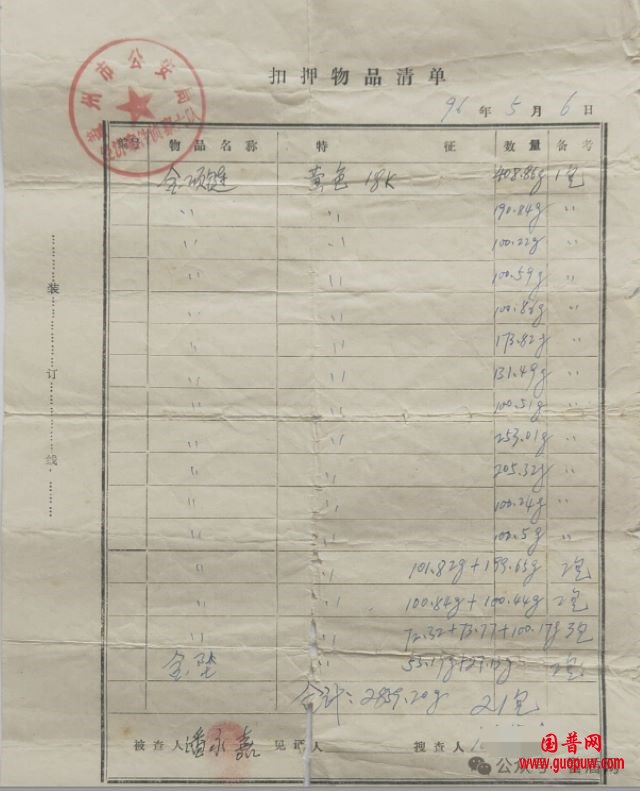 扣押物品清单
96年5月6日
编号 物品名称 特征 数量 备考
金项链 黄色 18K 408.86g 1包
〃 〃 190.84g 〃
〃 〃 100.22g 〃
〃 〃 100.59g 〃
〃 〃 〃
〃 〃 173.82g 〃
〃 〃 131.49g 〃
〃 〃 100.51g 〃
〃 〃 253.01g 〃
〃 〃 205.32g 〃
〃 〃 100.24g 〃
〃 〃 100.5g 〃
〃 〃 2包
〃 〃 100.84g+100.44g 2包
〃 〃 72.32+73.77+100.17g 3包
金坠 〃 2包
合计:2859.20g 21包
被查人 潘永嘉 见证人 搜查人
装订线
州市公安局
国普网
www.guopuw.com
公众号